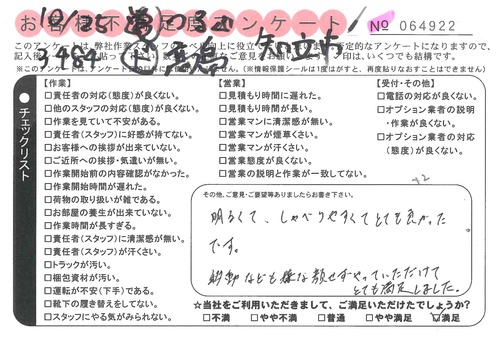 お客様不満足度アンケート
№ 064922
12/25
3484
知立市
このアンケートは、弊社作業
※このアンケート
(※情報保護シールは1度はがすと、再度貼りなおすことはできません)
チェックリスト
【作業】
□責任者の対応(態度)が良くない。
□他のスタッフの対応(態度)が良くない。
□作業を見ていて不安がある。
□責任者(スタッフ)に好感が持てない。
□お客様への挨拶が出来ていない。
□ご近所への挨拶・気遣いが無い。
□作業開始前の内容確認がなかった。
□作業開始時間が遅れた。
□荷物の取り扱いが雑である。
□お部屋の養生が出来ていない。
□作業時間が長すぎる。
□責任者(スタッフ)に清潔感が無い。
□責任者(スタッフ)が汗くさい。
□トラックが汚い。
□梱包資材が汚い。
□運転が不安(下手)である。
□靴下の履き替えをしてない。
□スタッフにやる気がみられない。
【営業】
□見積もり時間に遅れた。
□見積もり時間が長い。
□営業マンに清潔感が無い。
□営業マンが煙草くさい。
□営業マンが汗くさい。
□営業態度が良くない。
□営業の説明と作業が一致してない。
【受付・その他】
□電話の対応が良くない。
□オプション業者の説明
・作業が良くない。
□オプション業者の対応
(態度)が良くない。
その他、ご意見・ご要望等ありましたらお書き下さい。
明るくて、しゃべりやすくてとても良かった
です。
なども嫌な顔せずやっていただけて
とても満足しました。
☆当社をご利用いただきまして、ご満足いただけたでしょうか？
□不満 □やや不満 □普通 □やや満足 □満足